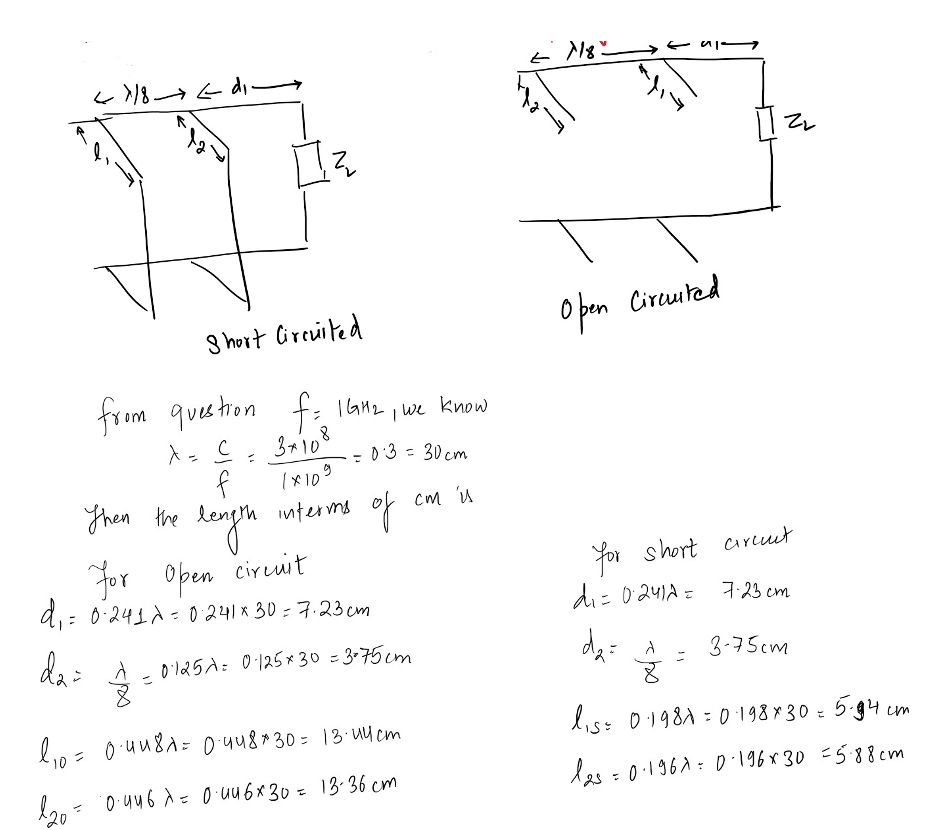 ← λ/8 → ← d1 →
l1
l2
ZL
Short Circuited
← λ/8 → ← d1 →
l2
l1
ZL
Open Circuited
from question f = 1GHz, we know
λ = c/f = 3*10^8/1*10^9 = 0.3 = 30cm
Then the length interms of cm is
For Open circuit
d1 = 0.241λ = 0.241 x 30 = 7.23 cm
d2 = λ/8 = 0.125λ = 0.125*30 = 3.75cm
l10 = 0.448λ = 0.448*30 = 13.44cm
l20 = 0.446λ = 0.446x30 = 13.36 cm
For short circuit
d1 = 0.241λ = 7.23cm
d2 = λ/8 = 3.75cm
l1s = 0.198λ = 0.198*30 = 5.94 cm
l2s = 0.196λ = 0.196*30 = 5.88cm